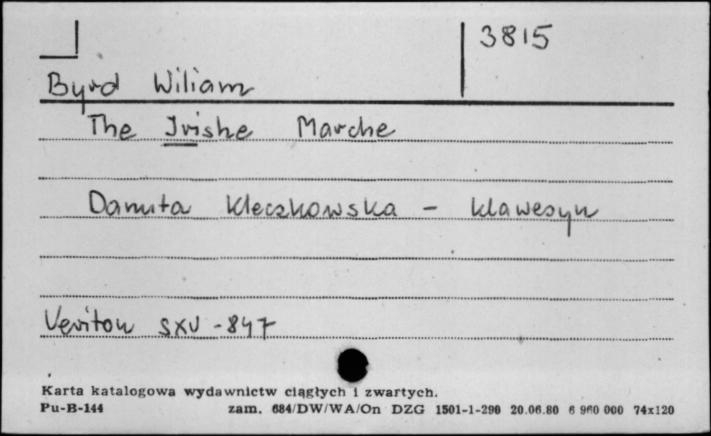 3815
Byrd Wiliam
The Irishe Marche
Danuta Kleczkowska - klawesyn
Veriton SXV-847
Karta katalogowa wydawnictw ciągłych i zwartych.
Pu-B-144 zam. 684/DW/WA/On DZG 1501-1-290 20.06.80 6 960 000 74x120